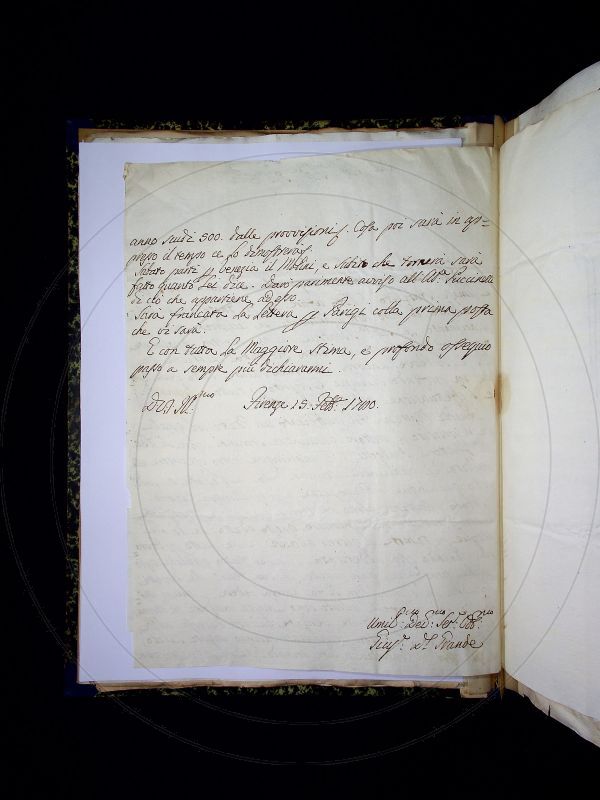 anno scudi 500. dalle provvisioni. Cosa poi sarà in ap-
presso il tempo ce lo dimostrerà.
Sabato partì p Venezia il Molini, e subito che tornerà sarà
fatto quanto Lei dice. Darò parimente avviso all' Ab.e Puccinelli
di ciò che appartiene ad esso.
Sarà francata la Lettera p Parigi colla prima posta
che vi sarà.
E con tutta la Maggiore stima, e profondo ossequio
passo a sempre più dichiararmi.
Di V. S. Ill.ma Firenze 15. Febb.
Umil.mo Dev.mo Ser.e Obb.mo
Gius.e del Grande